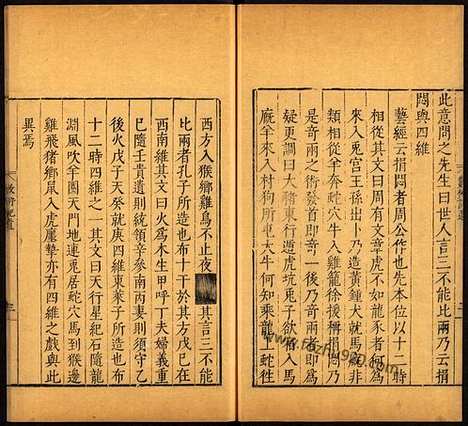 此意問之先生曰世人言三不能比兩乃云捐
悶與四維
藝經云捐悶者周公作也先本位以十二時
相從其文曰同有文章虎不如龍豕者何爲
來入兎宫王孫出卜乃造黄鍾犬就馬廄非
類相從羊奔蛇穴牛入雞籠徐援稱捐悶乃
是奇兩之術發首一後乃奇兩者即爲
疑更調曰大豬東行遁虎坑兎子欲宿入馬
廐羊來入村狗所屯大牛何知乘龍上蛇往
西方入猴鄉雞鳥不止夜 其言三不能
比兩者孔子所造也布十干於其方戊巳在
西南維其文曰火爲木生甲呼丁夫婦義重
巳隨壬貴遺則統領辛參南丙妻則須守乙
後火戊子天癸就庚四維東萊子所造也布
十二時四維之一其文曰天行星紀石隨龍
淵風吹羊圈天門地連兎居蛇穴馬到猴邊
雞飛豬鄉鼠入虎廛摯亦有四維之戲與此
異焉
數術記遺
三
www.fozhu920.com